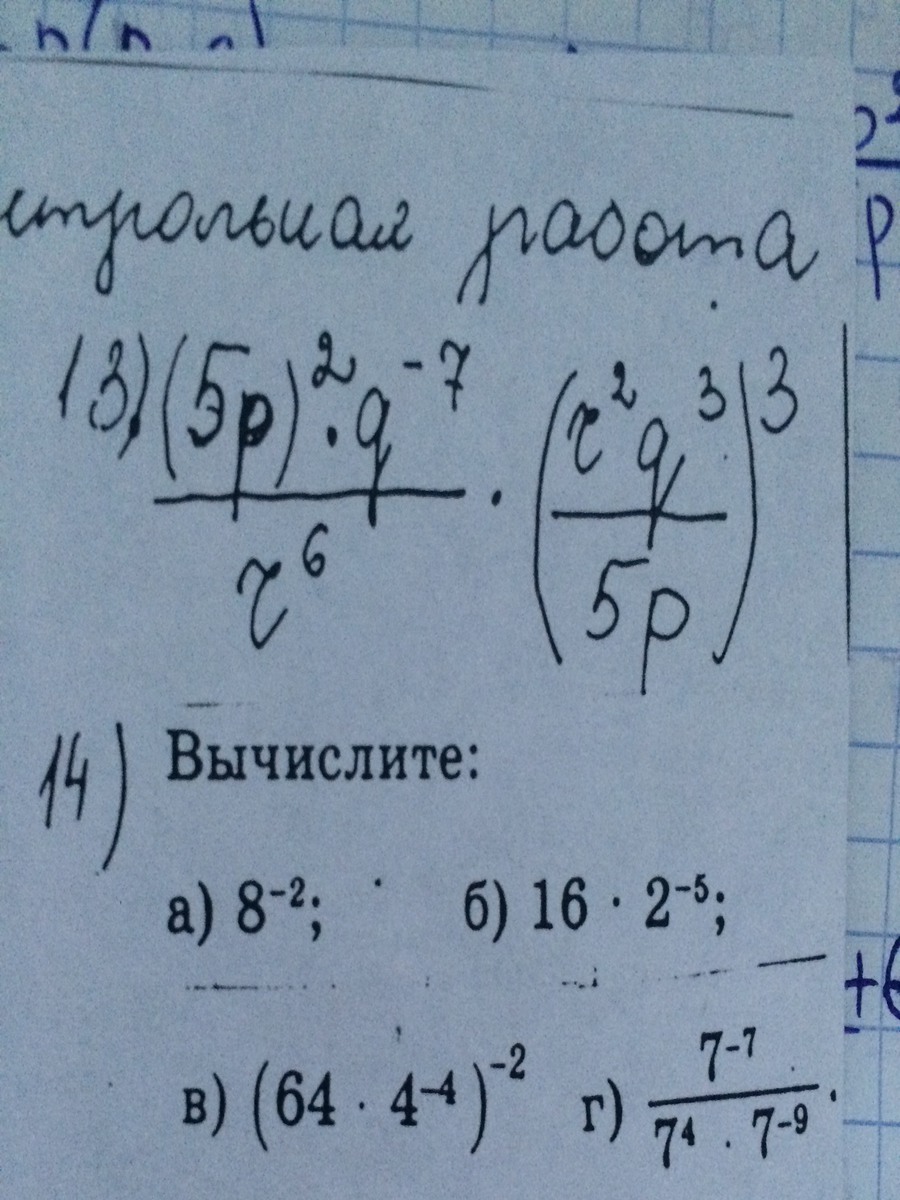 нтрольная работа
13) (5p)² · q⁻⁷ / r⁶ · (r²q³ / 5p)³
14) Вычислите:
а) 8⁻²; б) 16 · 2⁻⁵;
в) (64 · 4⁻⁴)⁻² г) 7⁻⁷ / 7⁴ · 7⁻⁹.